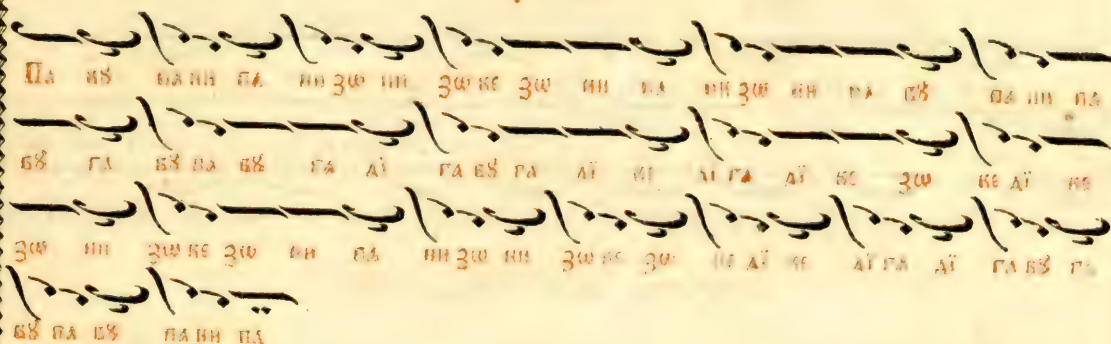 Па вȣ па ни па ни зѡ ни зѡ ке зѡ ни па ни зѡ ни па вȣ па ни па
вȣ га вȣ па вȣ га дї га вȣ га дї ке дї га дї ке зѡ ке дї ке
зѡ ни зѡ ке зѡ ни па ни зѡ ни зѡ ке зѡ ке дї ке дї га дї га вȣ га
вȣ па вȣ па ни па